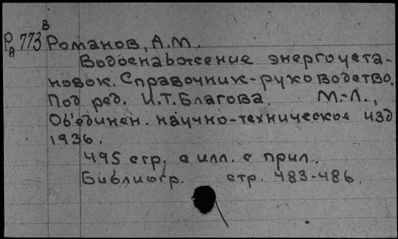 В
Р 773 Романов, А.М.
а
Водоснабжение энергоуста-
новок. Справочник-руководство.
Под ред. И.Т.Благова. М.-Л.,
Объединен. научно-техническое изд
1936.
495 стр. с илл. с прил.
Библиогр. стр. 483-486.